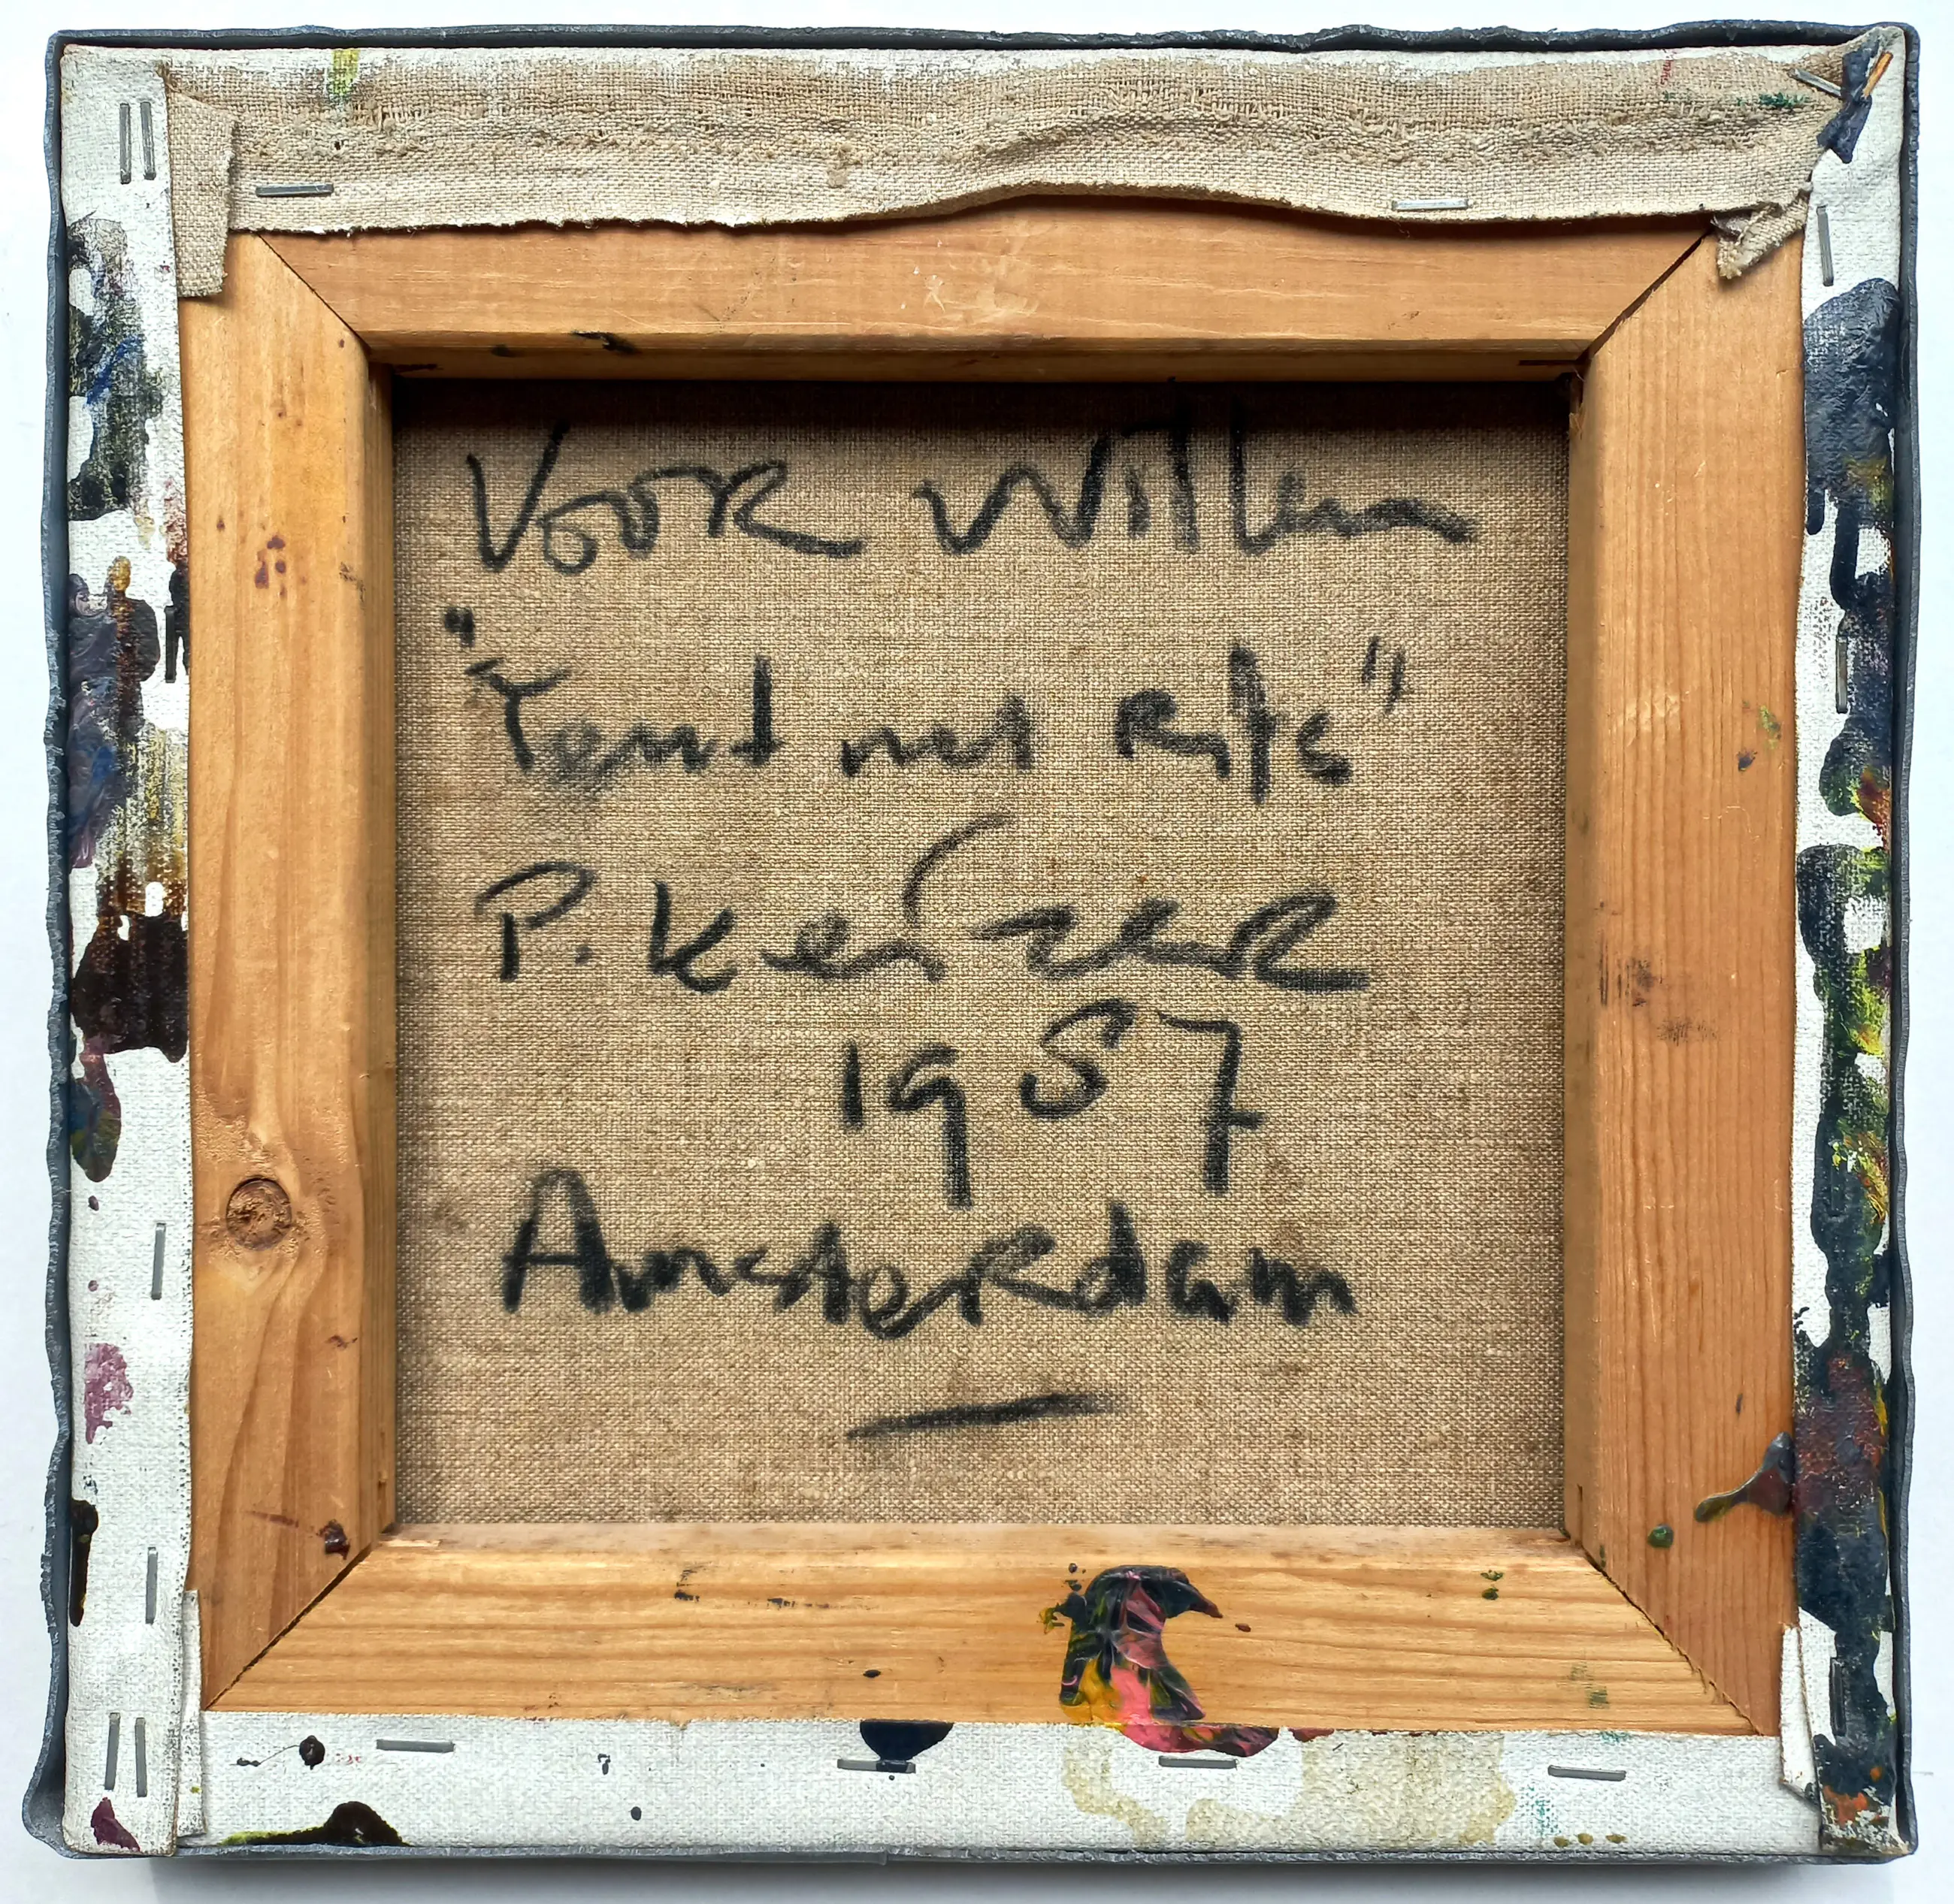 Voor Willem
"Tent met Rits"
P. Keizer
1987
Amsterdam